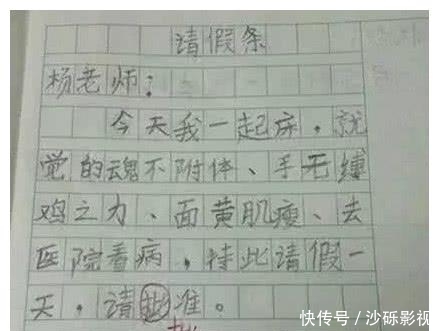 请假条
杨老师：
今天我一起床，就
觉的魂不附体、手无缚
鸡之力、面黄肌瘦、去
医院看病，特此请假一
天，请批准。
批
快传号／沙砾影视